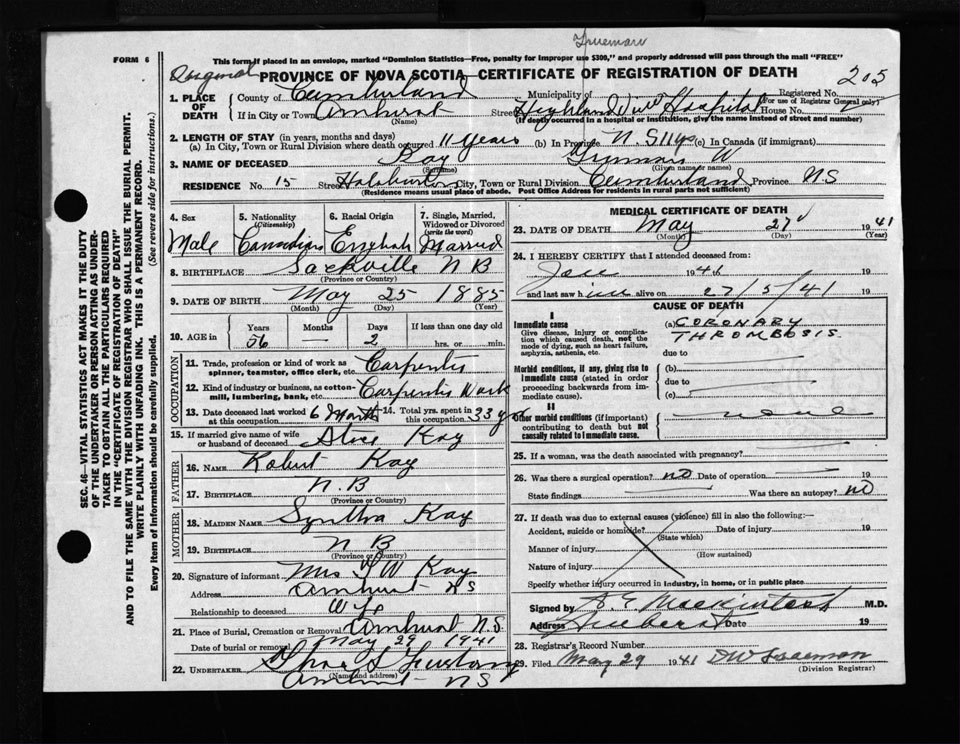 Trueman
FORM 6
This form if placed in an envelope, marked "Dominion Statistics—Free, penalty for improper use $300," and properly addressed will pass through the mail "FREE"
Original PROVINCE OF NOVA SCOTIA—CERTIFICATE OF REGISTRATION OF DEATH 205
1. PLACE OF DEATH
County of Cumberland Municipality of Registered No.
(For use of Registrar General only)
If in City or Town Amherst Street Highland View Hospital House No.
(Name) (If death occurred in a hospital or institution, give the name instead of street and number)
2. LENGTH OF STAY (in years, months and days)
(a) In City, Town or Rural Division where death occurred 11 Years (b) In Province N.S. 11 yrs (c) In Canada (if immigrant)
3. NAME OF DECEASED Kay Trueman W
(Surname) (Given name or names)
RESIDENCE No. 15 Street City, Town or Rural Division Cumberland Province NS
(Residence means usual place of abode. Post Office Address for residents in rural parts not sufficient)
4. Sex Male
5. Nationality (Citizenship) Canadian
6. Racial Origin English
7. Single, Married, Widowed or Divorced (write the word) Married
8. BIRTHPLACE Sackville N B
(Province or Country)
9. DATE OF BIRTH May 25 1885
(Month) (Day) (Year)
10. AGE in Years 56 Months — Days 2 If less than one day old hrs. or min.
OCCUPATION
11. Trade, profession or kind of work as spinner, teamster, office clerk, etc. Carpenter
12. Kind of industry or business, as cotton-mill, lumbering, bank, etc. Carpenter Work
13. Date deceased last worked at this occupation 6 Months 14. Total yrs. spent in this occupation 33 yrs
15. If married give name of wife or husband of deceased Kay
FATHER
16. NAME Robert Kay
17. BIRTHPLACE N.B
(Province or Country)
MOTHER
18. MAIDEN NAME Kay
19. BIRTHPLACE N B
(Province or Country)
20. Signature of informant Mrs T W Kay
Address Amherst NS
Relationship to deceased Wife
21. Place of Burial, Cremation or Removal Amherst N.S.
Date of burial or removal May 29 1941
22. UNDERTAKER
(Name and address)
Amherst NS
MEDICAL CERTIFICATE OF DEATH
23. DATE OF DEATH May 27 1941
(Month) (Day) (Year)
24. I HEREBY CERTIFY that I attended deceased from:
19 19
and last saw him alive on 27/5/41 19
CAUSE OF DEATH
I
Immediate cause
Give disease, injury or complication which caused death, not the mode of dying, such as heart failure, asphyxia, asthenia, etc.
(a) CORONARY THROMBOSIS
due to
Morbid conditions, if any, giving rise to immediate cause (stated in order proceeding backwards from immediate cause).
(b)
due to
(c)
II
Other morbid conditions (if important) contributing to death but not causally related to immediate cause.
none
25. If a woman, was the death associated with pregnancy?
26. Was there a surgical operation? NO Date of operation 19
State findings Was there an autopsy? NO
27. If death was due to external causes (violence) fill in also the following:—
Accident, suicide or homicide? Date of injury 19
(State which)
Manner of injury
(How sustained)
Nature of injury
Specify whether injury occurred in industry, in home, or in public place
Signed by M.D.
Address Date 19
28. Registrar's Record Number
29. Filed May 29 1941
(Division Registrar)
SEC. 46—VITAL STATISTICS ACT MAKES IT THE DUTY
OF THE UNDERTAKER OR PERSON ACTING AS UNDER-
TAKER TO OBTAIN ALL THE PARTICULARS REQUIRED
IN THE "CERTIFICATE OF REGISTRATION OF DEATH"
AND TO FILE THE SAME WITH THE DIVISION REGISTRAR WHO SHALL ISSUE THE BURIAL PERMIT.
WRITE PLAINLY WITH UNFADING INK. THIS IS A PERMANENT RECORD.
Every item of information should be carefully supplied. (See reverse side for instructions.)